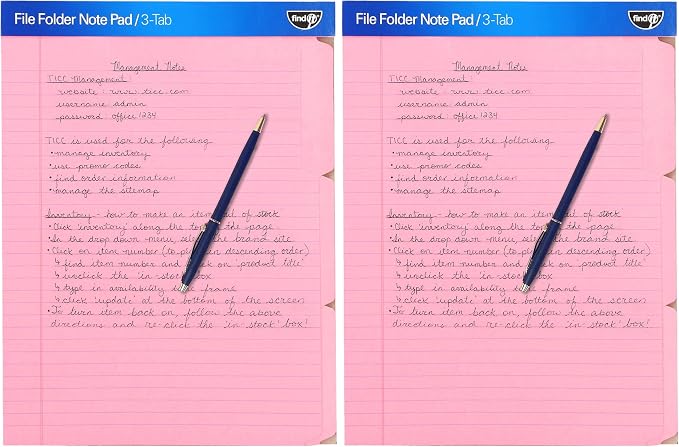 File Folder Note Pad / 3-Tab
find it
Management Notes
TICC Management:
website : www.ticc.com
username : admin
password : office1234
TICC is used for the following
• manage inventory
• use promo codes
• find order information
• manage the sitemap
Inventory - how to make an item out of stock
• Click 'inventory' along the top of the page
• In the drop down menu, select the brand site
• Click on item number (to place in descending order)
↳ find item number and click on 'product title'
↳ unclick the 'in-stock' box
↳ type in availability frame
↳ click 'update' at the bottom of the screen
• To turn item back on, follow the above
directions and re-click the 'in-stock' box!
File Folder Note Pad / 3-Tab
find it
Management Notes
TICC Management:
website : www.ticc.com
username : admin
password : office1234
TICC is used for the following
• manage inventory
• use promo codes
• find order information
• manage the sitemap
Inventory - how to make an item out of stock
• Click 'inventory' along the top of the page
• In the drop down menu, select the brand site
• Click on item number (to place in descending order)
↳ find item number and click on 'product title'
↳ unclick the 'in-stock' box
↳ type in availability frame
↳ click 'update' at the bottom of the screen
• To turn item back on, follow the above
directions and re-click the 'in-stock' box!